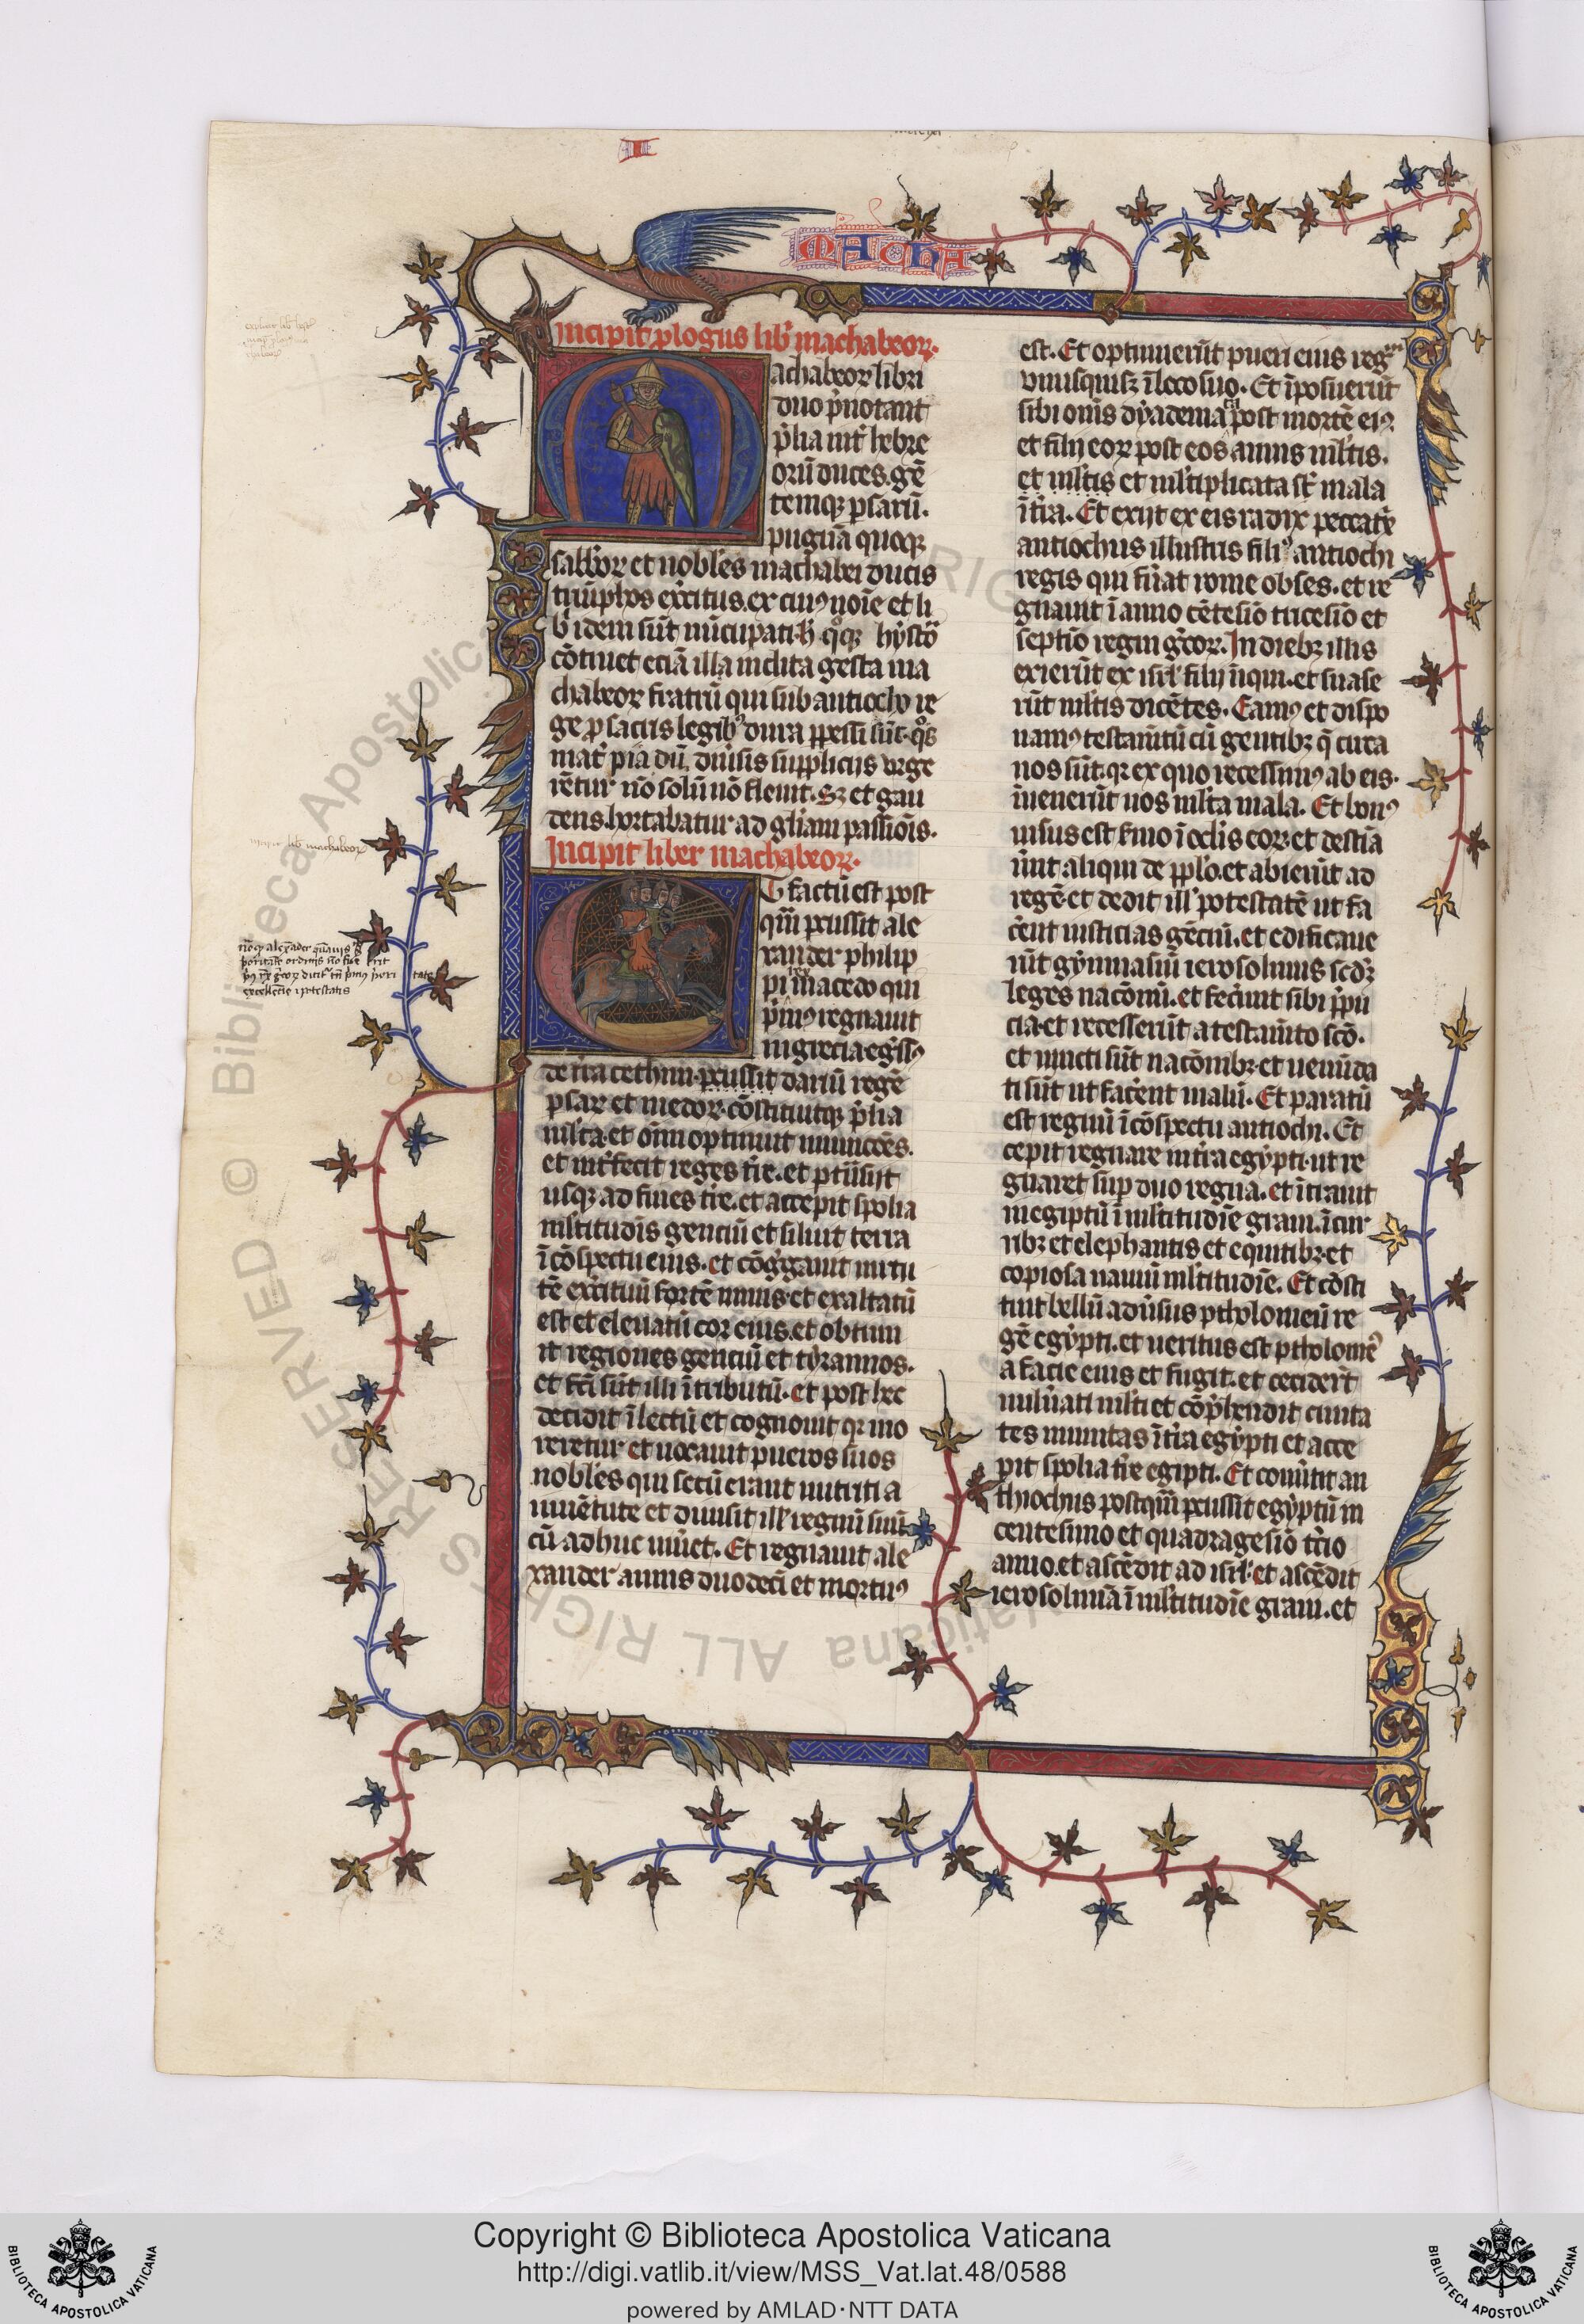 I
MACHA
Incipit ꝓlogus lib̃ machabeoꝝ.
Machabeoꝝ libri
duo p̃notant
p̃lia int̃ hebre
orũ duces. gẽ
temqꝫ ꝑsarũ.
pugnã quoqꝫ
sabb̃oꝝ et nobles machabei ducis
triũphos exc̃itus. ex cuiꝰ noĩe et li
b̃ idem sũt nũcupati. h̃ qͦqꝫ hysto
cõtinet eciã illa inclita gesta ma
chabeoꝝ fratrũ qui sub antiocho re
ge ꝓ sacris legibꝰ dira ꝑpessi sũt. qͦs
mat̃ pia dũ diũsis suppliciis vrge
rẽtur nõ solũ nõ fleuit. sꝫ et gau
dens. hortabatur ad gl̃iam passiõis.
Incipit liber machabeoꝝ.
Et factũ est post
qm̃ ꝑcussit ale
xander philip
pi rex macedo qui
p̃mꝰ regnauit
in grecia eg̃ssꝰ
de t̃ra cethim. ꝑcussit dariũ regẽ
ꝑsaꝝ et medoꝝ. cõstituitqꝫ p̃lia
ml̃ta. et om̃i optinuit municões.
et int̃fecit reges t̃re. et ꝑt̃nsijt
usqꝫ ad fines t̃re. et accepit spolia
ml̃titudĩs genciũ et siluit terra
ĩ cõspectu eius. et cõg̃gauit uirtu
tẽ exc̃itũ fortẽ nimis. et exaltatũ
est et eleuatũ cor eius. et obtinu
it regiones genciũ et tyrannos.
et fc̃i sũt illi ĩ tributũ. et post hec
decidit ĩ lectũ et cognouit qꝛ mo
reretur et uocauit pueros suos
nobl̃es qui secũ erant nutriti a
iuuẽtute et diuisit ill̃ regnũ suũ
cũ adhuc uiu̾et. Et regnauit ale
xander annis duodecĩ et mortuꝰ
est. Et optinuerũt pueri eius regnum
vnusquisqꝫ ĩ loco suo. Et ĩposuerũt
sibi om̃s dyademata post mortẽ eiꝰ
et filij eoꝝ post eos annis ml̃tis.
et ml̃tis et ml̃tiplicata st̃ mala
ĩ t̃ra. Et exijt ex eis radix peccat̃x
antiochus illustris filiꝰ antiochi
regis qui fũat rome obses. et re
gnauit ĩ anno cẽtesiõ tricesiõ et
septĩo regni g̃coꝝ. In diebꝫ illis
exierũt ex isrl̃ filij ĩiqui. et suase
rũt ml̃tis dicẽtes. Eamꝰ et dispo
namꝰ testam̃tũ cũ gentibꝫ q̃ circa
nos sũt. qꝛ ex quo recessimꝰ ab eis.
ĩuenerũt nos ml̃ta mala. Et bonꝰ
uisus est s̾mo ĩ ocl̃is eoꝝ. et destĩa
ũnt aliqui de pplo. et abierũt ad
regẽ. et dedit ill̃ potestatẽ ut fa
c̃ent iusticias gẽciũ. et edificaue
rũt gymnasiũ ierosolimis scdꝫ
leges nacõnũ. et fec̃unt sibi p̃pu
cia. et recesserũt a testam̃to scõ.
et iuncti sũt nacõnibꝫ. et uenũda
ti sũt ut fac̃ent malũ. Et paratũ
est regnũ ĩ cõspectu antiochi. Et
cepit regnare in t̃ra egypti. ut re
gnaret sup duo regna. et ĩtrauit
in egiptũ ĩ ml̃titudĩe graui. ĩ cur
ribꝫ et elephantis et equitibꝫ. et
copiosa nauiũ ml̃titudĩe. Et cõsti
tuit bellũ adũsus ptholomeũ re
gẽ egypti. et ueritus est ptholomeꝰ
a facie eius et fugit. et cecider̃t
uuln̾ati ml̃ti et cõp̃hendit ciuita
tes munitas ĩ t̃ra egypti et acce
pit spolia t̃re egipti. Et conũtit an
thiochus postqm̃ ꝑcussit egyptũ in
centesimo et quadragesiõ t̃cio
anno. et ascẽdit ad isrl̃. et ascẽdit
ierosolimã ĩ ml̃titudĩe graui. et
Biblioteca Apostolica Vaticana ALL RIGHTS RESERVED ©
Copyright © Biblioteca Apostolica Vaticana
http://digi.vatlib.it/view/MSS_Vat.lat.48/0588
powered by AMLAD·NTT DATA
BIBLIOTECA APOSTOLICA VATICANA
BIBLIOTECA APOSTOLICA VATICANA